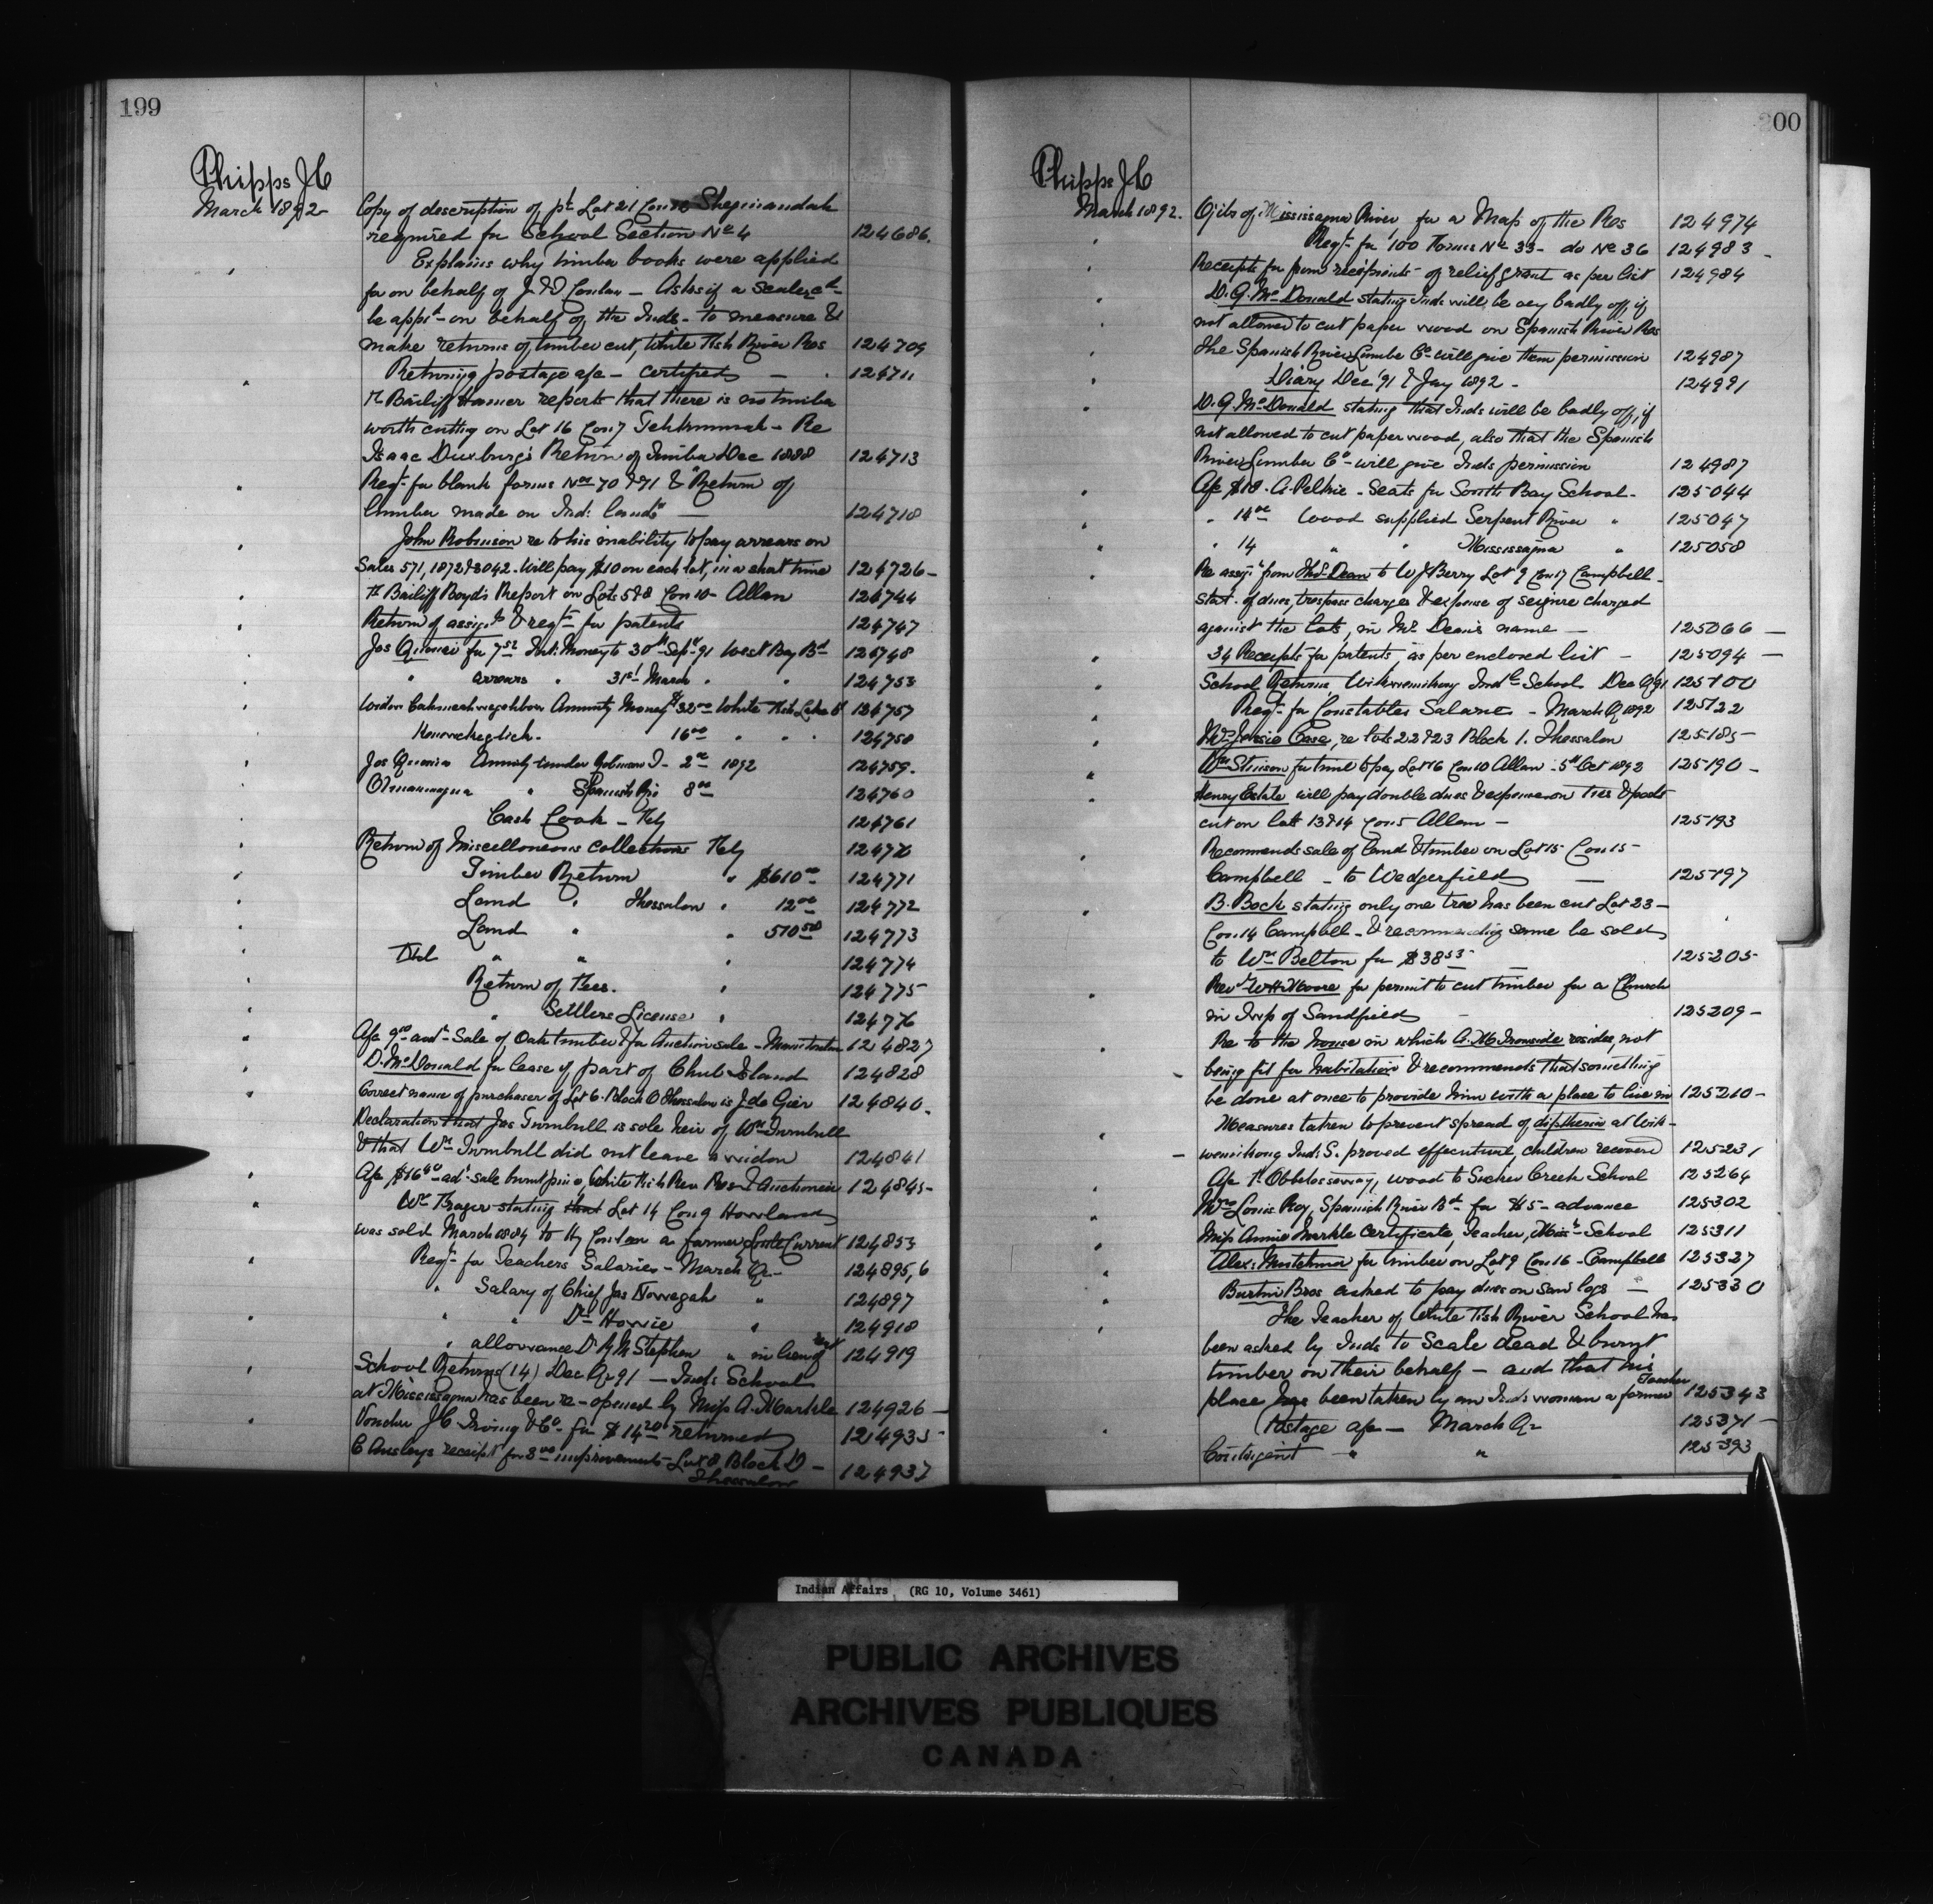 199
Phipps J C
March 1892
Copy of description of pt Lot 21 Con 12 Sheguiandah
required for School Section No 4 124686.
Explains why timber books were applied
for on behalf of J & D Conlon — Asks if a scaler cd
be appd on behalf of the Inds - to measure &
make returns of timber cut, White Fish River Res 124709
Returning postage a/c — certified — 124711
Bailiff Hamer reports that there is no timber
worth cutting on Lot 16 Con 7 Tehkummah - Re
Isaac Duxbury's Return of Timber Dec 1888 124713
Reqn for blank forms Nos 70 & 71 & "Return of
timber made on Ind: Lands" — 124718
John Robinson re to his inability to pay arrears on
Sales 571, 1872 & 3042. Will pay $10 on each lot, in a short time 124726 -
Bailiff Boyd's Report on Lots 5 & 8 Con 10 - Allan 124744
Return of assigts & reqts for patents 124747
Jos for 7 52 Int: Money to 30th Sept 91 West Bay Bd 124748
" arrears " 31st March " " 124753
Widow Annuity Money $32 00 White Fish Lake Bd 124757
16 00 " " " 124758
Jos Annuity under Robinson T - 2 00 1892 124759.
" Spanish Riv 8 00 124760
Cash Book - Feby 124761
Return of Miscellaneous Collections Feby 12477
Timber Return " $610 00 124771
Land " Thessalon " 12 00 124772
Land " " 510 50 124773
" " " 124774
Return of Fees. " 124775
" Settlers License " 124776
A/c 9 00 advt - Sale of Oak timber & for Auction sale - Manitoulin 124827
D. McDonald for lease of part of Chub Island 124828
Correct name of purchaser of Lot 6. Block O Thessalon is J. de Gier 124840.
Declaration that Jas Turnbull is sole heir of Wm Turnbull
& that Wm Turnbull did not leave a widow 124841
A/c $16 40 adt - sale burnt pine, White Fish River Res & Auctioneer 124845 -
Wm Trager stating that Lot 14 Con 9 Howland
was sold March 1884 to Hy Conlon a farmer Little Current 124853
Reqn for Teachers Salaries - March Qr - 124895,6
" Salary of Chief Jas Nowegah " 124897
" " Dr Howie " 124918
" allowance Dr R M Stephen " in lieu of rent 124919
School Returns (14) Dec Qr 91 — Inds School
at Mississagua has been re-opened by Miss A. Markle 124926 -
Voucher J C Irving & Co. for $14 20 returned 124935 -
C Ansley's receipt for 8 00 improvements - Lot 8 Block D - 124937
Thessalon
200
Phipps J C
March 1892.
Ojibs of Mississagua River for a Map of the Res 124974
Reqn for 100 Forms No 33 - do No 36 124983 -
Receipts for from recipients of relief grant as per list 124984
D. G. McDonald stating Inds will be very badly off, if
not allowed to cut paper wood on Spanish River Res
the Spanish River Lumber Co will give them permission 124987
Diary Dec '91 & Jay 1892 - 124991
D. G. McDonald stating that Inds will be badly off, if
not allowed to cut paper wood, also that the Spanish
River Lumber Co - will give Inds permission 124987
A/c $18. A. Peltrie - Seats for South Bay School - 125044
" 14 00 Wood supplied Serpent River " 125047
" 14 " " Mississagua " 125058
Re assigt from Thos Dean to W J Berry Lot 9 Con 17 Campbell -
stat. of dues, trespass charges & expense of seizure charged
against the lots, in Mr. Dean's name — 125066 —
34 Receipts for patents, as per enclosed list — 125094 —
School Returns, Wikwemikong Indl School Dec Q 91 125100
Reqn for Constables Salaries - March Q 1892 125122
Mrs Jessie Case, re lots 22 & 23 Block 1. Thessalon 125185 -
Wm Stinson for time to pay Lot 16 Con 10 Allan - 5th Oct 1892 125190 -
Henry Estate will pay double dues & expenses on Ties & posts
cut on lots 13 & 14 Con 5 Allan — 125193
Recommends sale of land & timber on Lot 15 Con 15 -
Campbell - to Wedgerfield — 125197
B. Bock stating only one tree has been cut Lot 23 -
Con. 14 Campbell - & recommending same be sold
to Wm Belton for $38 53 — 125205 -
Revd W H Moore for permit to cut timber for a Church
in Twp of Sandfield — 125209 -
Re to the house in which A. M. Ironside resides, not
being fit for habitation & recommends that something
be done at once to provide him with a place to live in 125210 -
Measures taken to prevent spread of diptheria at Wik-
wemikong Ind: S. proved effectual, children recovered 125231
A/c wood to Sucker Creek School 125264
Mrs Louis Roy, Spanish River Bd for $5 - advance 125302
Miss Annie Markle Certificate, Teacher, School 125311
Alex: Mutchmor for timber on Lot 9 Con. 16 - Campbell 125327
Burton Bros asked to pay dues on saw logs — 125330
The Teacher of White Fish River School has
been asked by Inds to scale dead & burnt
timber on their behalf — and that his
Teacher
place has been taken by an Inds woman a former 125343
Postage a/c — March Qr 125371 -
Contingent " " 125393
Indian Affairs (RG 10, Volume 3461)
PUBLIC ARCHIVES
ARCHIVES PUBLIQUES
CANADA